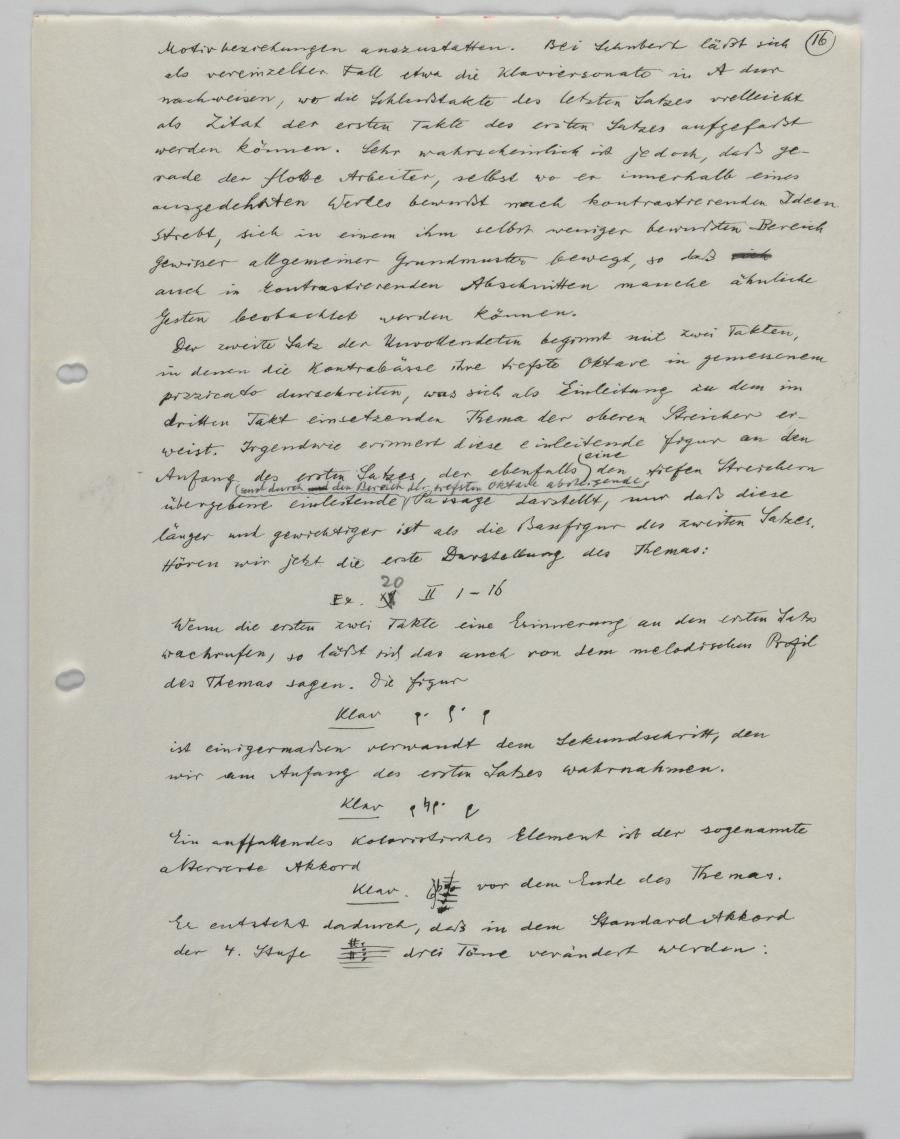 16
Motivbeziehungen auszustatten. Bei Schubert läßt sich
als vereinzelter Fall etwa die Klaviersonate in A dur
nachweisen, wo die Schlußtakte des letzten Satzes vielleicht
als Zitat der ersten Takte des ersten Satzes aufgefaßt
werden können. Sehr wahrscheinlich ist jedoch, daß ge-
rade der flotte Arbeiter, selbst wo er innerhalb eines
ausgedehnten Werkes bewußt nach kontrastierenden Ideen
strebt, sich in einem ihm selbst weniger bewußten Bereich
gewisser allgemeiner Grundmuster bewegt, so daß
auch in kontrastierenden Abschnitten manche ähnliche
Gesten beobachtet werden können.
Der zweite Satz der Unvollendeten beginnt mit zwei Takten,
in denen die Kontrabässe ihre tiefste Oktave in gemessenem
pizzicato durchschreiten, was sich als Einleitung zu dem im
dritten Takt einsetzenden Thema der oberen Streicher er-
weist. Irgendwie erinnert diese einleitende Figur an den
eine
Anfang des ersten Satzes, der ebenfalls den tiefen Streichern
und durch den Bereich der tiefsten Oktave absteigende
übergebene einleitende Passage darstellt, nur daß diese
länger und gewichtiger ist als die Bassfigur des zweiten Satzes.
Hören wir jetzt die erste Darstellung des Themas:
Ex. 20 II 1-16
Wenn die ersten zwei Takte eine Erinnerung an den ersten Satz
wachrufen, so läßt sich das auch von dem melodischen Profil
des Themas sagen. Die Figur
Klav
ist einigermaßen verwandt dem Sekundschritt, den
wir am Anfang des ersten Satzes wahrnahmen.
Klav
Ein auffallendes koloristisches Element ist der sogenannte
alterierte Akkord
Klav. vor dem Ende des Themas.
Er entsteht dadurch, daß in dem Standard Akkord
der 4. Stufe drei Töne verändert werden: